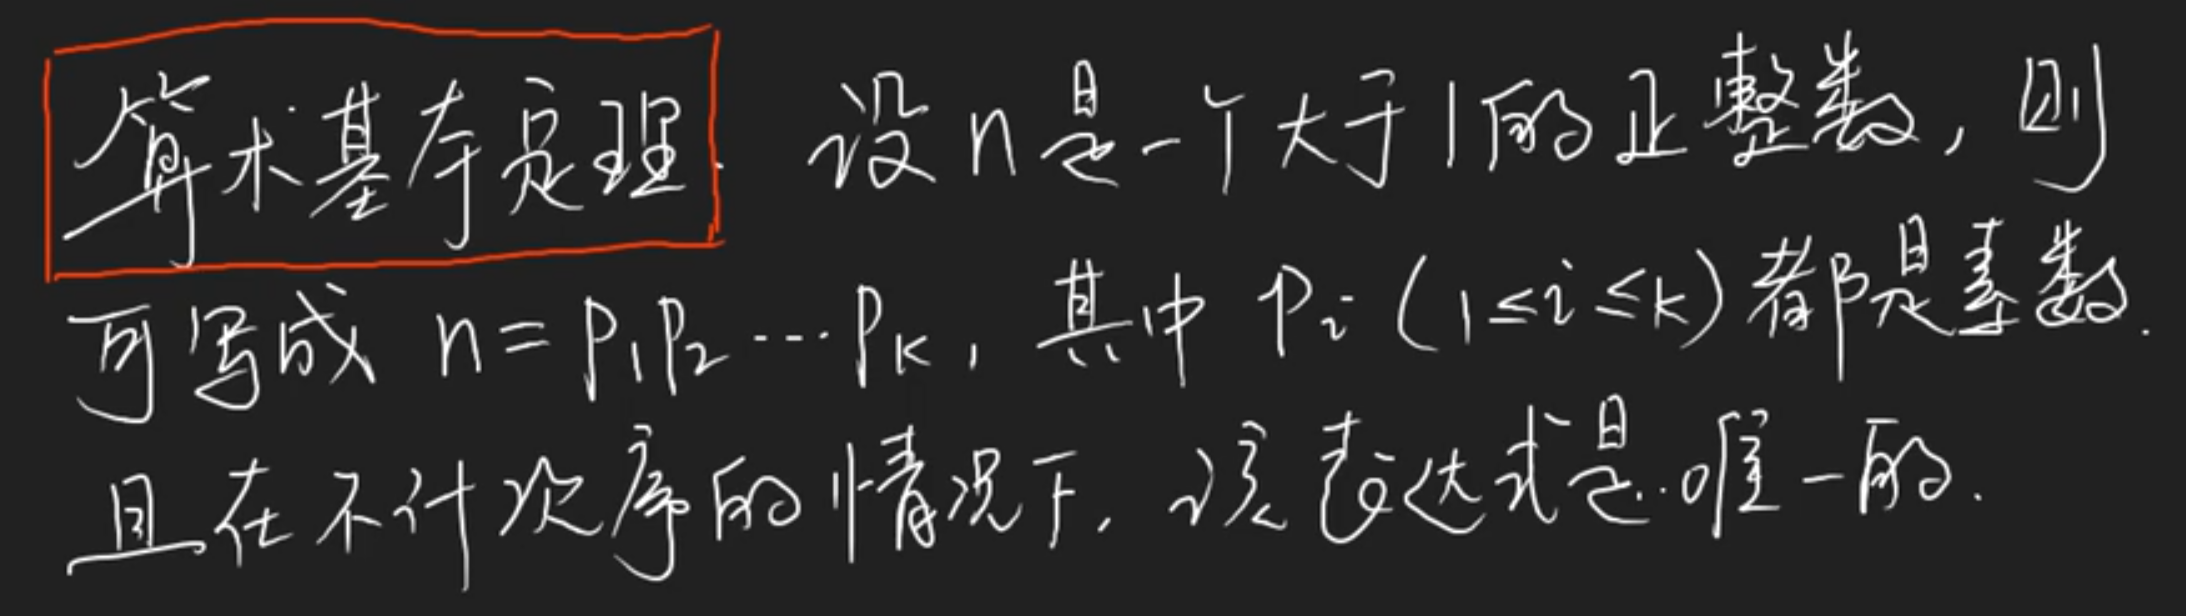 算术基本定理. 设 n 是一个大于 1 的正整数, 则
可写成 n = p₁p₂ ··· pₖ, 其中 pᵢ (1 ≤ i ≤ k) 都是素数.
且在不计次序的情况下, 该表达式是唯一的.